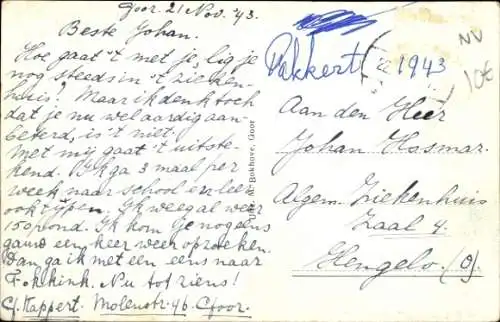 Goor. 21 Nov. '43.
Beste Johan.
Hoe gaat 't met je, lig je
nog steeds in 't zieken-
huis? Maar ik denk toch
dat je nu wel aardig aan-
beterd, is 't niet.
Met mij gaat 't uitste-
kend. Ik ga 3 maal per
week naar school en leer
ook typen. Ik weeg al weer
150 pond. Ik kom je nog eens
gauw een keer weer opzoeken.
Dan ga ik met een eens naar
Fokkink. Nu tot ziens!
G. Kappert. Molenstr. 46. Goor.
Bokhove, Goor
Pakkert (22 1943
NV
10E
Aan den Heer
Johan Hasmar.
Algem. Ziekenhuis
Zaal 4.
Hengelo. (O)